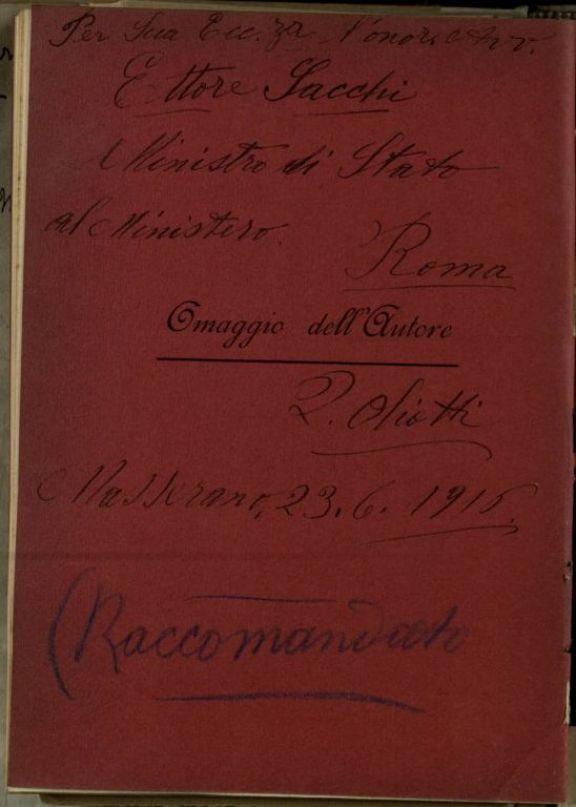 Per Sua Ecc.za l'onor. Avv.
Ettore Sacchi
Ministro di Stato
al Ministero.
Roma
Omaggio dell'Autore
Masserano, 23. 6. 1916.
(Raccomandato